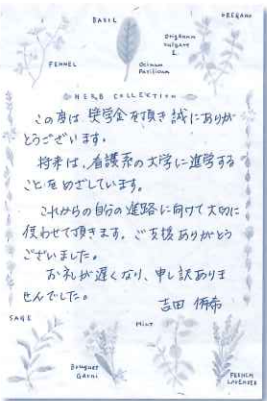 BASIL
OREGANO
Origanum
vulgare
L
FENNEL
Ocimum
Basilicum
HERB COLLECTION
この度は、奨学金を頂き誠にありが
とうございます。
将来は、看護系の大学に進学する
ことをめざしています。
これからの自分の進路に向けて大切に
使わせて頂きます。ご支援ありがとう
ございました。
お礼が遅くなり、申し訳ありま
せんでした。
吉田 侑希
SAGE
MINT
Bouquet
Garni
FRENCH
LAVENDER